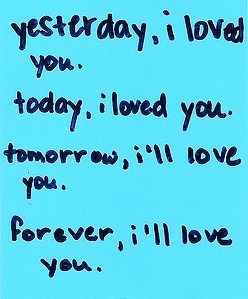 yesterday, i loved
you.
today, i loved you.
tomorrow, i'll love
you.
forever, i'll love
you.